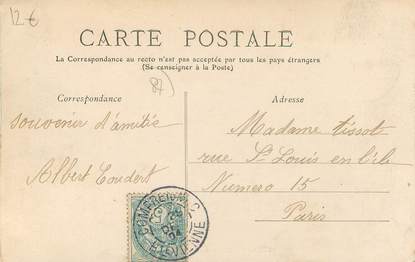 12€
CARTE POSTALE
La Correspondance au recto n'est pas acceptée par tous les pays étrangers
(Se renseigner à la Poste)
87
Correspondance
Adresse
souvenir d'amitié
Albert Toudert
Madame Tissot
rue St Louis en l'ile
Numero 15
Paris
Hte VIENNE